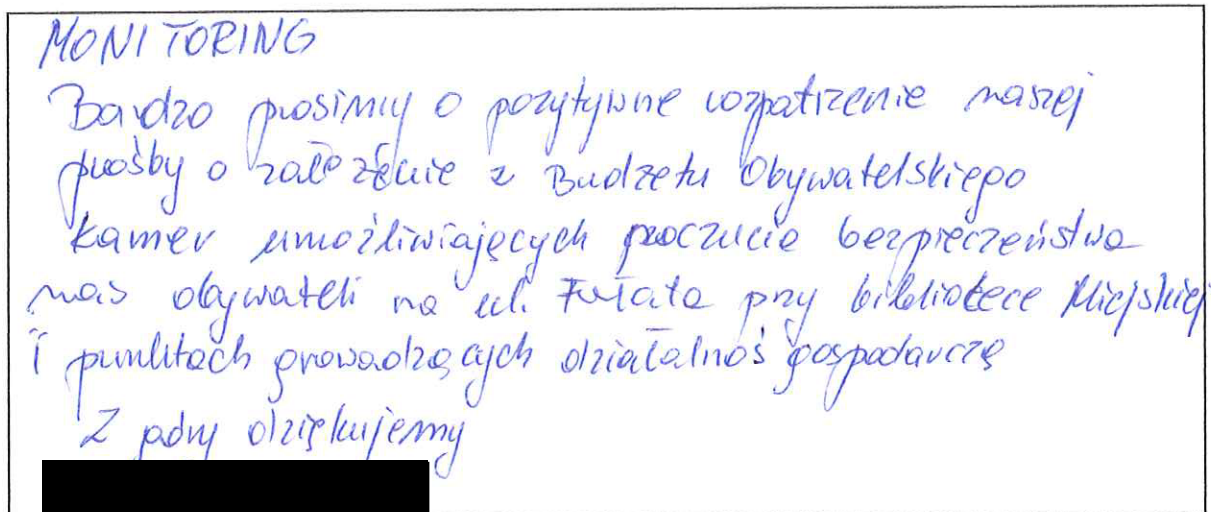 MONITORING
Bardzo prosimy o pozytywne rozpatrzenie naszej
prośby o założenie z Budżetu Obywatelskiego
kamer umożliwiających poczucie bezpieczeństwa
nas obywateli na ul. Fałata przy bibliotece Miejskiej
i punktach prowadzących działalnoś gospodarczą
Z góry dziękujemy